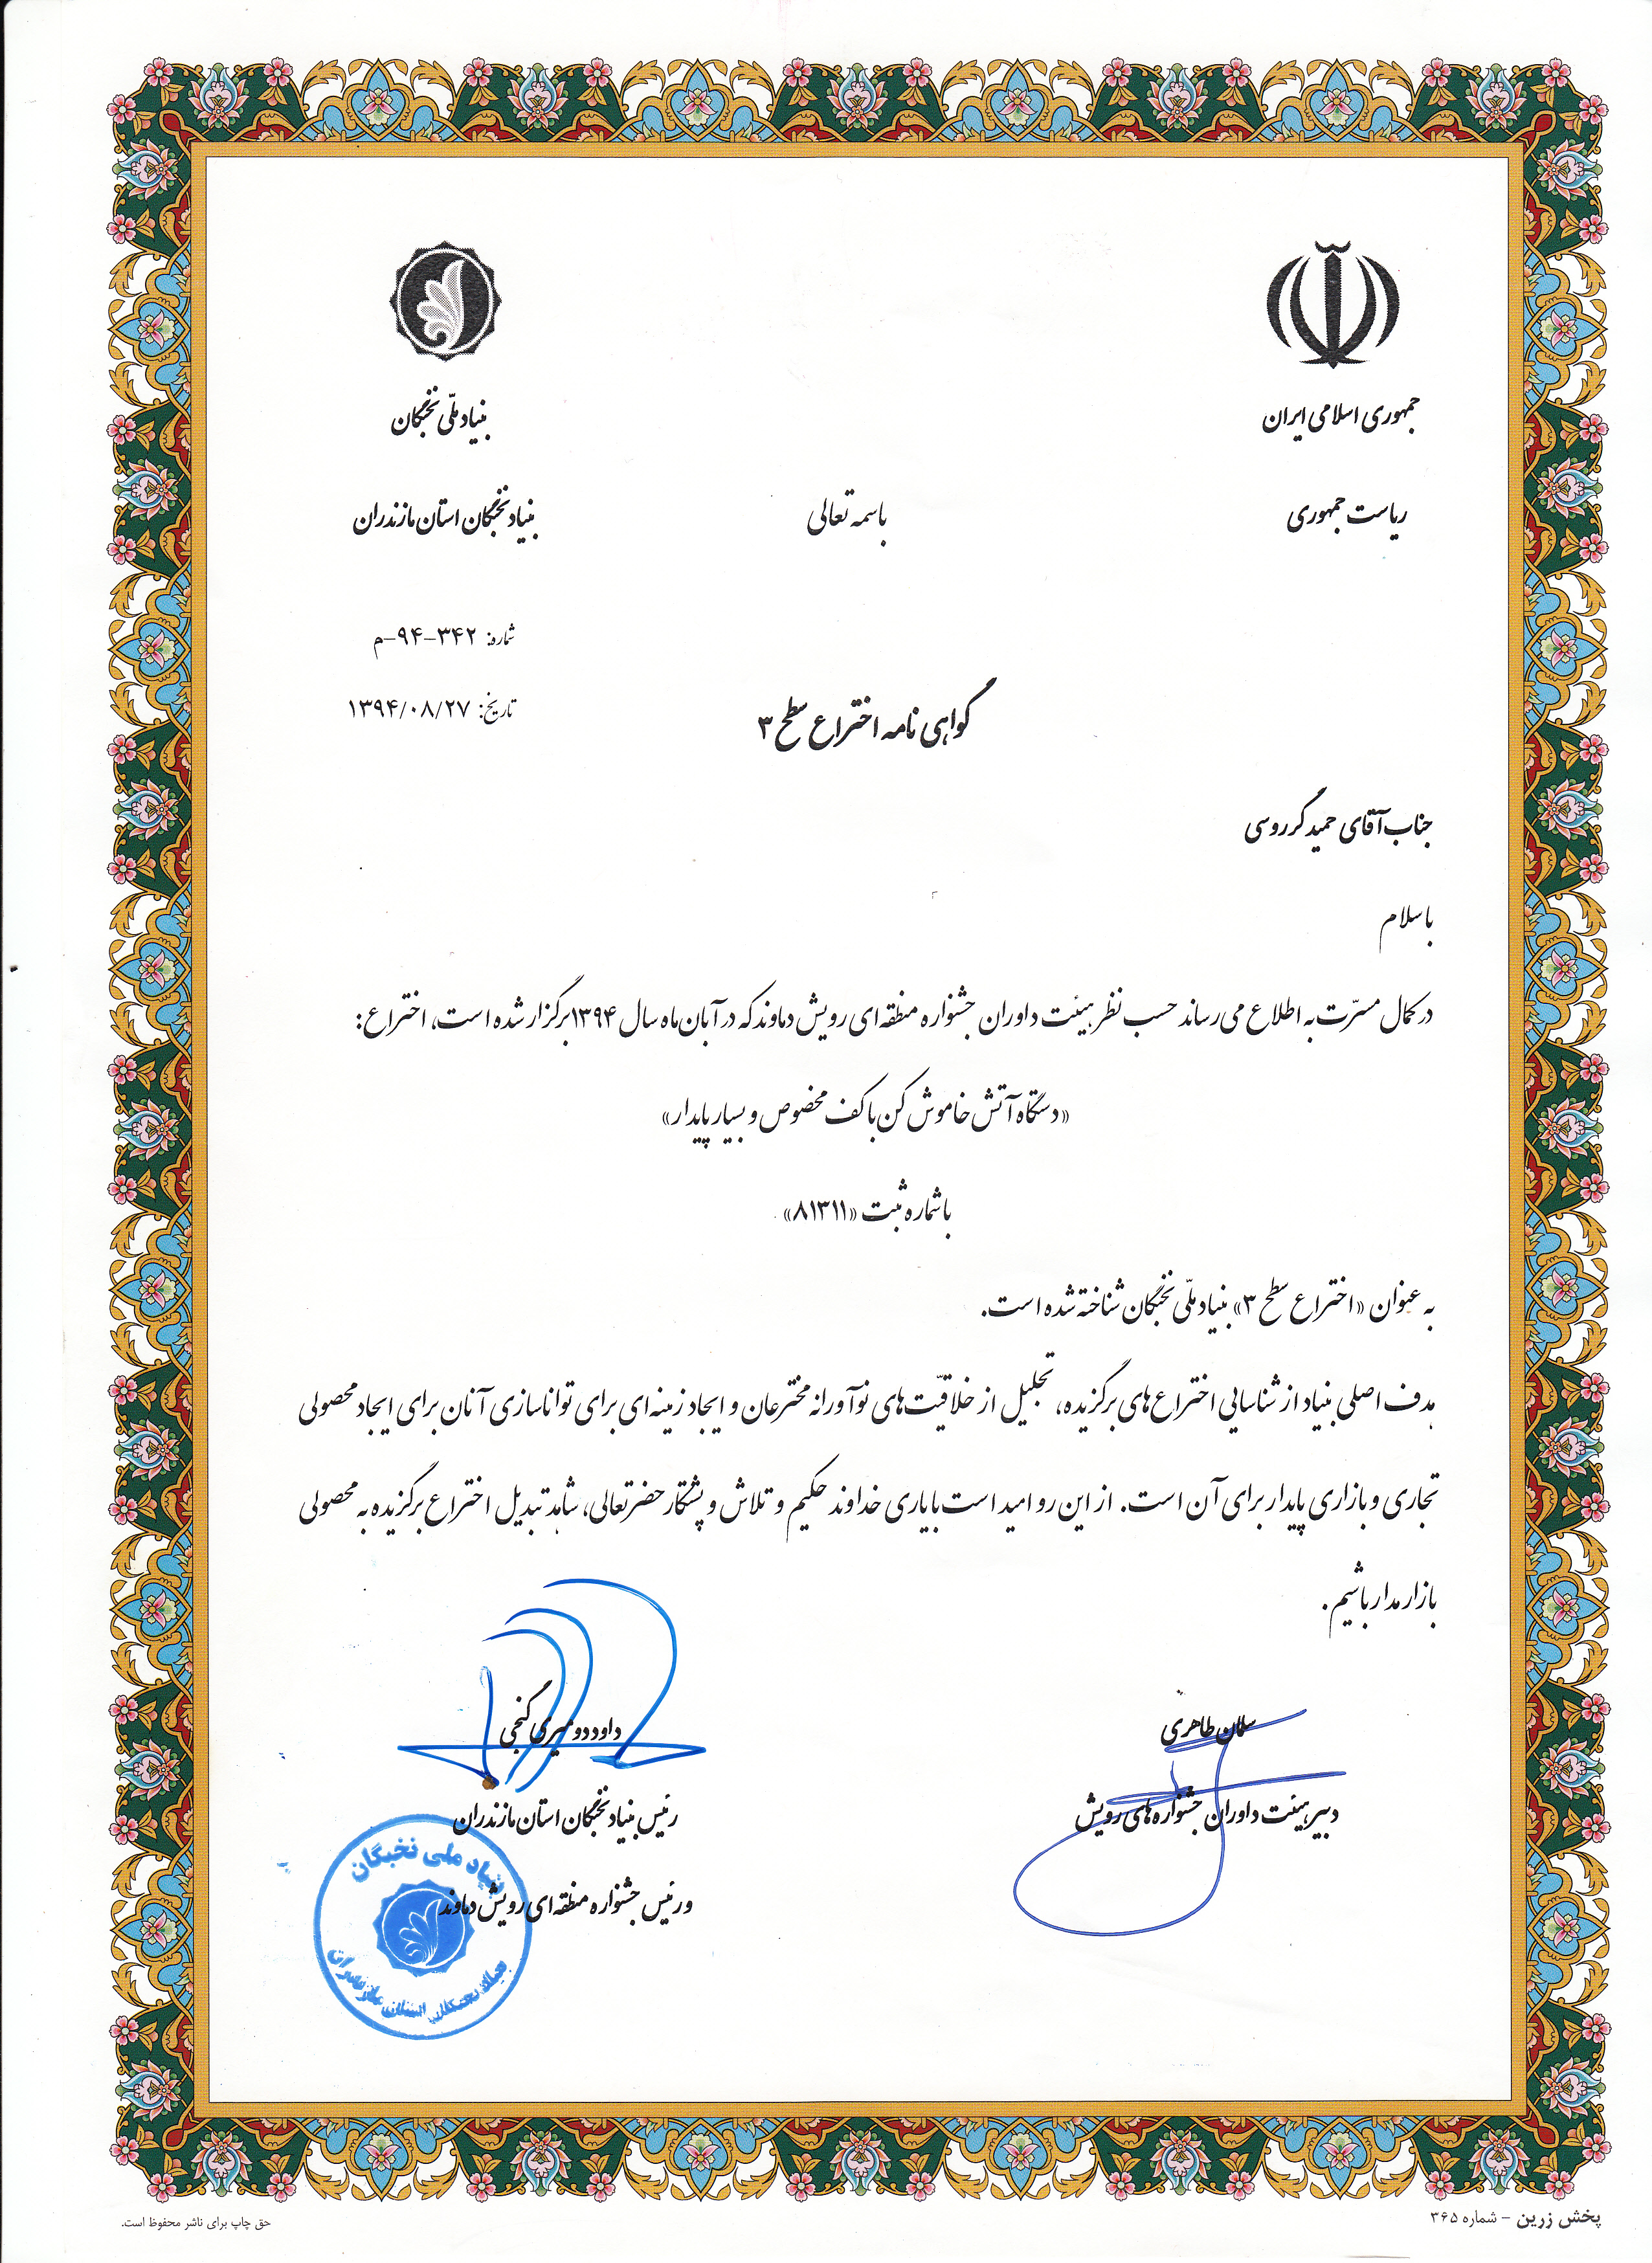 جمهوری اسلامی ایران
بنیاد ملّی نخبگان
ریاست جمهوری
باسمه تعالی
بنیاد نخبگان استان مازندران
شماره: ۳۴۲-۹۴-م
تاریخ: ۱۳۹۴/۰۸/۲۷
گواهی نامه اختراع سطح ۳
جناب آقای حمید گرروسی
با سلام
در کمال مسرّت به اطلاع می رساند حسب نظر هیئت داوران جشنواره منطقه ای رویش دماوند که در آبان ماه سال ۱۳۹۴ برگزار شده است، اختراع:
«دستگاه آتش خاموش کن با کف مخصوص و بسیار پایدار»
با شماره ثبت «۸۱۳۱۱»
به عنوان «اختراع سطح ۳» بنیاد ملّی نخبگان شناخته شده است.
هدف اصلی بنیاد از شناسایی اختراع های برگزیده، تجلیل از خلاقیّت های نوآورانه مخترعان و ایجاد زمینه ای برای توانا سازی آنان برای ایجاد محصولی
تجاری و بازاری پایدار برای آن است. از این رو امید است با یاری خداوند حکیم و تلاش و پشتکار حضرتعالی، شاهد تبدیل اختراع برگزیده به محصولی
بازار مدار باشیم.
سلمان طاهری
داود دومیری گنجی
دبیر هیئت داوران جشنواره های رویش
رئیس بنیاد نخبگان استان مازندران
و رئیس جشنواره منطقه ای رویش دماوند
بنیاد ملی نخبگان
بنیاد نخبگان استان مازندران
پخش زرین - شماره ۳۶۵
حق چاپ برای ناشر محفوظ است.